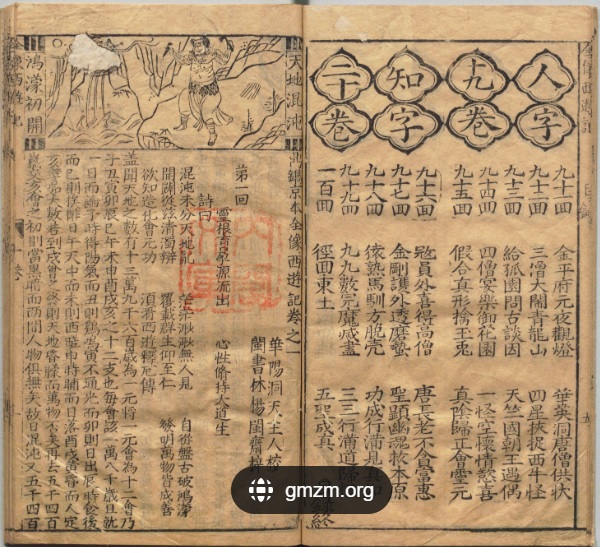 人字
十九卷
知字
二十卷
九十一回 金平府元夜觀燈 華英洞唐僧供狀
九十二回 三僧大鬧青龍山 四星挾捉西牛怪
九十三回 給孤園問古談因 天竺國朝王遇偶
九十四回 四僧宴樂御花園 一怪空懷情慾喜
九十五回 假合真形擒玉兔 真陰歸正會靈元
九十六回 寇員外喜得高僧 唐長老不貪富惠
九十七回 金剛護外透魔蟄 聖顯幽魂救本原
九十八回 猿熟馬馴方脫殼 功成行滿見真
九十九回 九九數完魔滅盡 三三行滿道歸
一百回 徑回東土 五聖成真
錄終
天地混沌
鴻濛初開
京本全像西遊記卷之一
華陽洞天主人校
閩書林楊閩齋梓
第一回
靈根育孕源流出 心性修持大道生
詩曰
混沌未分天地亂 茫茫渺渺無人見 自從盤古破鴻濛
開闢從茲清濁辨 覆載群生仰至仁 發明萬物皆成善
欲知造化會元功 須看西遊釋厄傳
蓋聞天地之數有十二萬九千六百歲為一元將一元會為十二會乃
子丑寅卯辰巳午未申酉戌亥之十二支也每會該一萬八百歲且就
一日而論子時得陽氣而丑則鷄鳴寅不通光而卯則日出辰時食後
而巳則挨排日午天中而未則西蹉申時晡而日落酉戌黃昏而人定
亥譬於大數若到戌會之終則天地昏曚而萬物否矣再去五千四百
歲交亥會之初則當黑暗而兩間人物俱無矣故曰混沌又五千四百
gmzm.org